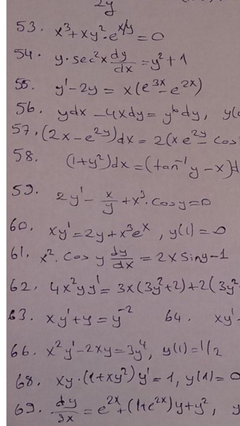 2y
53. x³+xy²·e^(x/y)=0
54. y·sec²x dy/dx = y²+1
55. y'-2y = x(e^(3x)-e^(2x))
56. ydx-4xdy=y⁶dy, y(
57. (2x-e^(2y))dx=2(xe^(2y)-cos
58. (1+y²)dx=(tan⁻¹y-x)d
59. 2y'-x/y+x³·cosy=0
60. xy'=2y+x³eˣ, y(1)=0
61. x²·cosy dy/dx=2xsiny-1
62. 4x²yy'=3x(3y²+2)+2(3y²
63. xy'+y=y⁻² 64. xy'
66. x²y'-2xy=3y⁴, y(1)=1/2
68. xy·(1+xy²)y'=1, y(1)=0
69. dy/3x=e^(2x)+(1+e^(2x))y+y²,